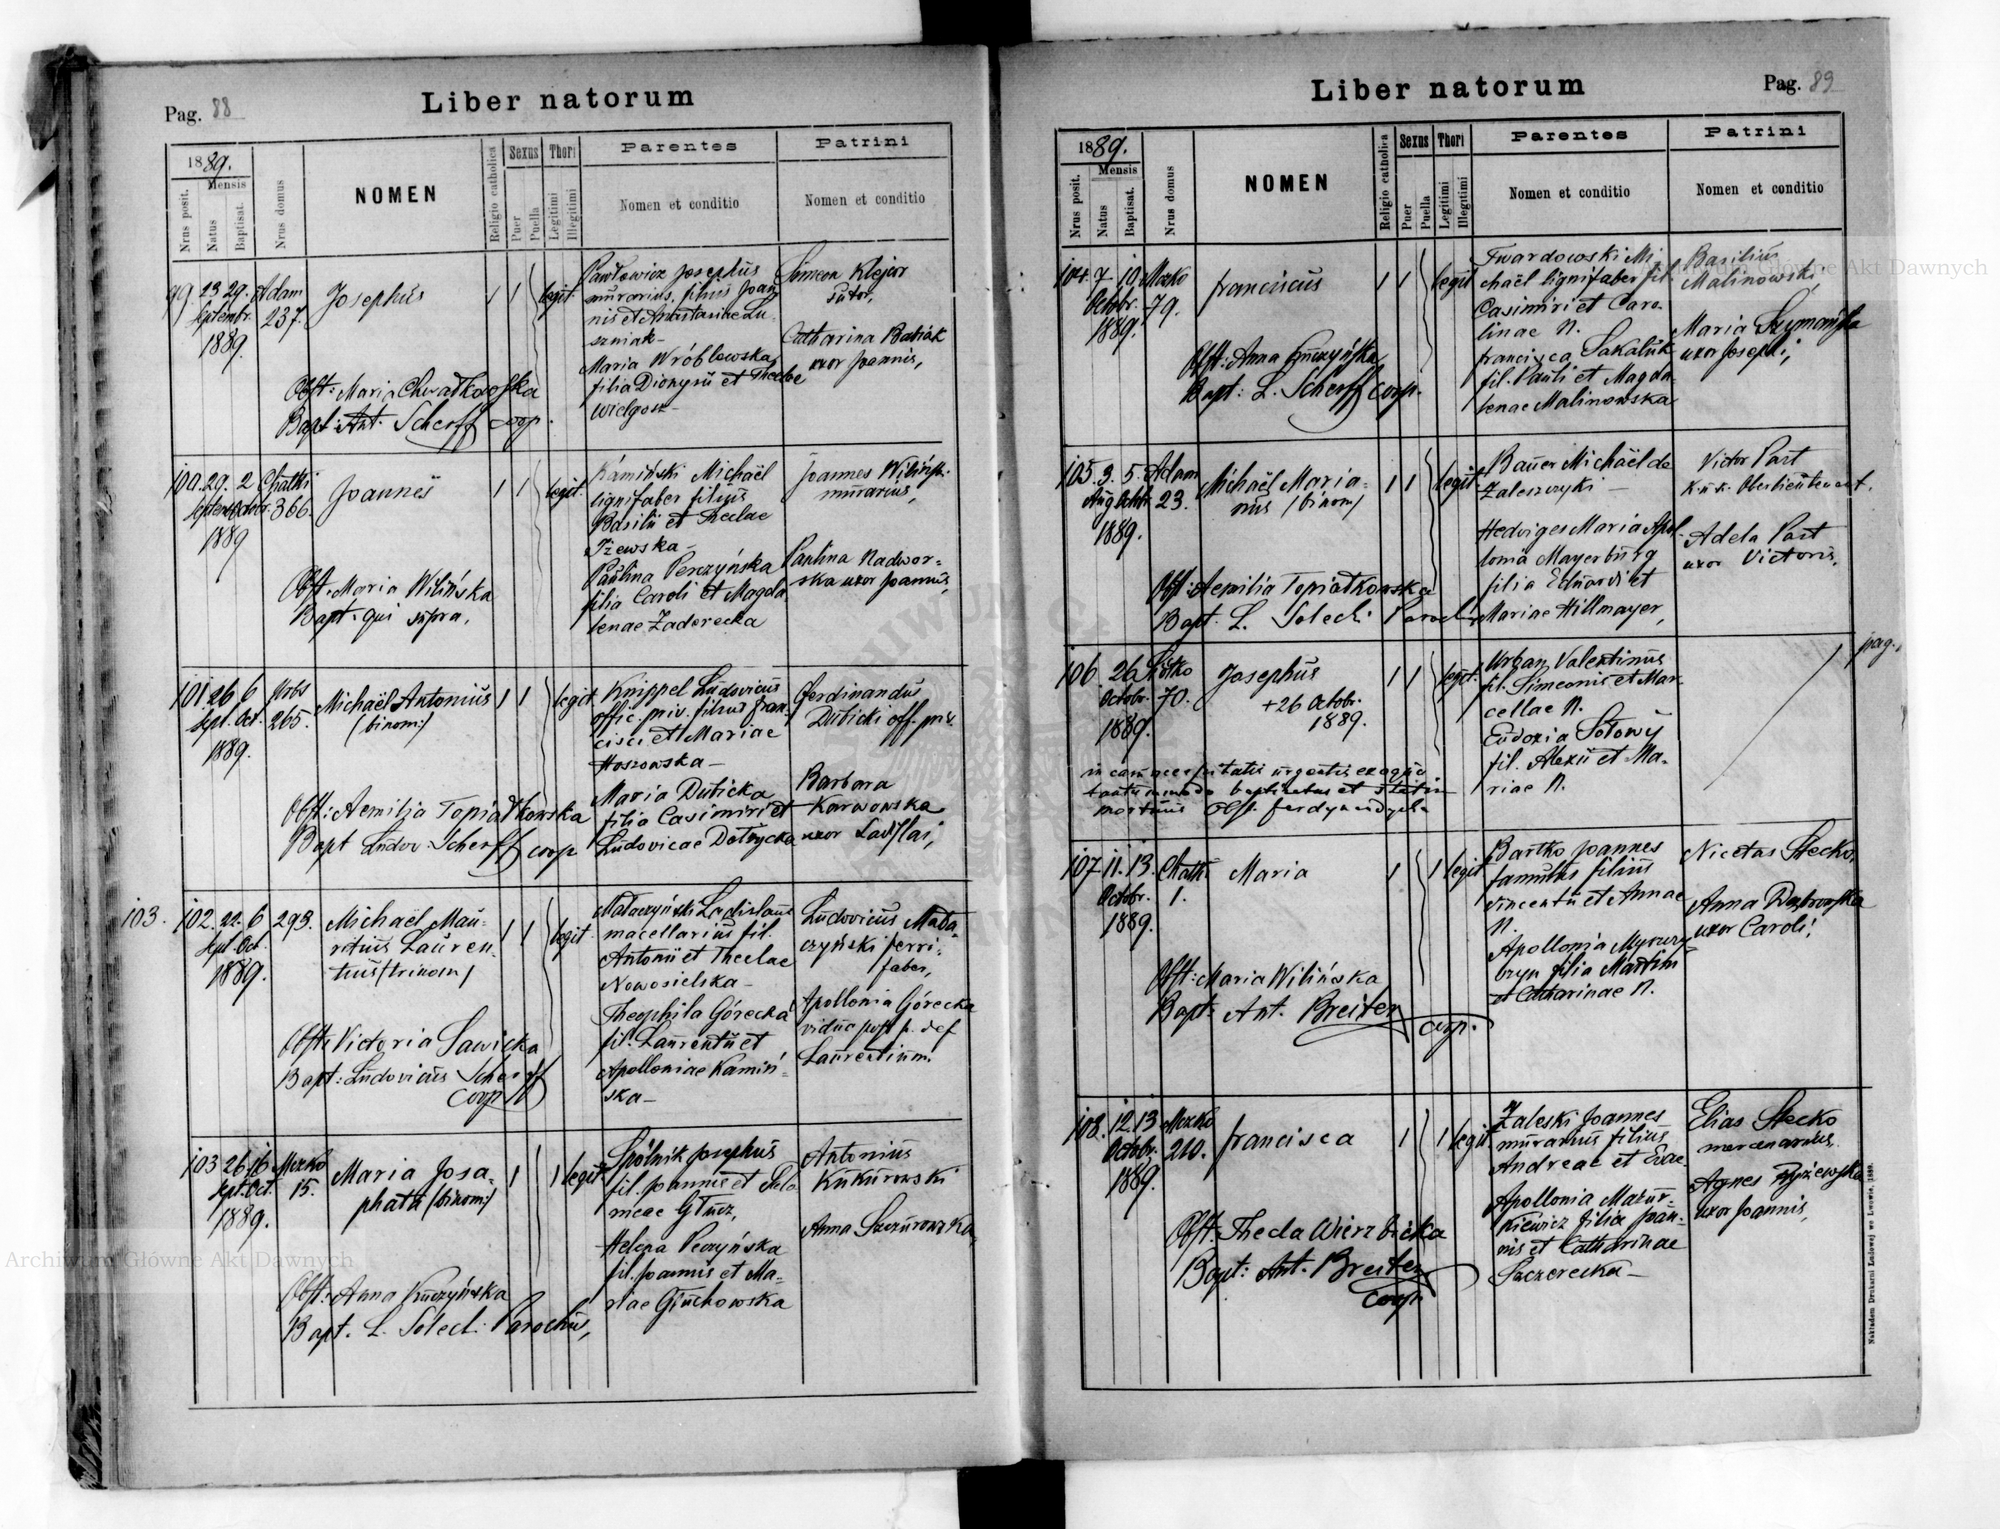 Pag. 88
Liber natorum
1889.
Mensis
Nrus posit.
Natus
Baptisat.
Nrus domus
NOMEN
Religio catholica
Sexus
Puer
Puella
Thori
Legitimi
Illegitimi
Parentes
Nomen et conditio
Patrini
Nomen et conditio
99. 23 29. Adam Josephus 1 1 legit.
Septembr. 237.
1889.
Pawłowicz Josephus
murarius, filius Joan
nis et Anastasiae Lu
szniak-
Maria Wróblewska
filia Dionysii et Theclae
Widgosz-
Simeon Klejor
Sutor,
Catharina Babiak
uxor Joannis,
Obst: Maria Chwatkowska
Bapt: Ant. Scherff coop.
100. 29. 2 Chatki Joannes 1 1 legit.
366.
1889
Kamiński Michaël
lignifaber filius
Basilii et Theclae
Iżewska-
Paulina Perczyńska
filia Caroli et Magda
lenae Zaderecka
Joannes Wilińsk.
murarius,
Paulina Nadwor-
ska uxor Joannis,
Obst: Maria Wilińska
Bapt. qui supra,
101. 26 6 Urbs Michaël Antonius 1 1 legit.
Sept. Oct. 265. (binom:)
1889.
Knippel Ludovicus
offic. priv. filius Fran
cisci et Mariae
Hoszowska-
Maria Duticka
filia Casimiri et
Ludovicae Dobrycka
Ferdinandus
Duticki off. priv.
Barbara
Karwowska
uxor Ladislai,
Obst: Aemilia Topiatkowska
Bapt Ludov Scherff coop
103. 102. 22. 6 293. Michaël Mau- 1 1 legit
Sept. Oct. ritius Lauren-
1889. tius (trinom)
Ladislaus
macellarius fil.
Antonii et Theclae
Nowosielska-
Theophila Górecka
fil. Laurentii et
Apolloniae Kamiń-
ska-
Ludovicus Mata-
czyński ferri-
faber,
Apollonia Górecka
vidua post p. def
Laurentium.
Obst: Victoria Sawicka
Bapt: Ludovicus Scherff
coop
103 26 16 Mozko Maria Josa- 1 1 legit
Sept. Oct. 15. phata (binom:)
1889.
Spólnik Josephus
fil. Joannis et Salo
meae Głucz,
Helena Peczyńska
fil. Joannis et Ma-
riae Głuchowska
Antonius
Kukurowski
Anna Szczurowska,
Obst: Anna Kuczyńska
Bapt. L. Solecki Parochus,
Pag. 89
Liber natorum
1889.
Mensis
Nrus posit.
Natus
Baptisat.
Nrus domus
NOMEN
Religio catholica
Sexus
Puer
Puella
Thori
Legitimi
Illegitimi
Parentes
Nomen et conditio
Patrini
Nomen et conditio
104. 7. 10. Mozko Franciscus 1 1 legit
Octobr. 79.
1889.
Twardowski Mi
chaël lignifaber fil.
Casimiri et Caro-
linae N.
Francisca Sakaluk
fil. Pauli et Magda
lenae Malinowska
Basilius
Malinowski,
Maria Szymańska
uxor Josephi,
Obst: Anna Kuczyńska
Bapt: L. Scherff coop.
105. 3. 5. Adam Michaël Maria- 1 1 legit
23. nus (binom)
1889.
Bauer Michaël de
Zaleszczyki-
Hedviges Maria Apol-
lonia Mayerburg
filia Eduardi et
Mariae Hillmayer,
Victor Part
K. u. K. Oberlieutenant,
Adela Part
uxor Victoris,
Obst: Aemilia Topiatkowska
Bapt. L. Solecki Paroch
106. 26 70. Josephus 1 1 legit.
Octobr. +26 Octobr.
1889. 1889.
Urban Valentinus
fil. Simeonis et Mar
cellae N.
Eudoxia Sołowij
fil. Alexii et Ma-
riae N.
pag.
in casu necessitatis urgentis ex aqua
tantummodo baptisatus et statim
mortuus Obst.
107. 11. 13. Chatki Maria 1 1 legit
Octobr. 1.
1889.
Bartko Joannes
famulus filius
Vincentii et Annae
N.
Apollonia
filia Martini
et Catharinae N.
Nicetas Stecko,
Anna Dąbrowska
uxor Caroli,
Obst: Maria Wilińska
Bapt: Ant. Breiter
coop.
108. 12 13 Mozko Francisca 1 1 legit.
Octobr. 210.
1889.
Zaleski Joannes
murarius filius
Andreae et Evae
Apollonia Mazur-
kiewicz filia Joan-
nis et Catharinae
Szczerecka-
Elias Stecko
mercenarius
Agnes Ryżewska
uxor Joannis,
Obst: Thecla Wierzbicka
Bapt: Ant. Breiter
coop.
Nakładem Drukarni Ludowej we Lwowie, 1889.
Archiwum Główne Akt Dawnych
Archiwum Główne Akt Dawnych